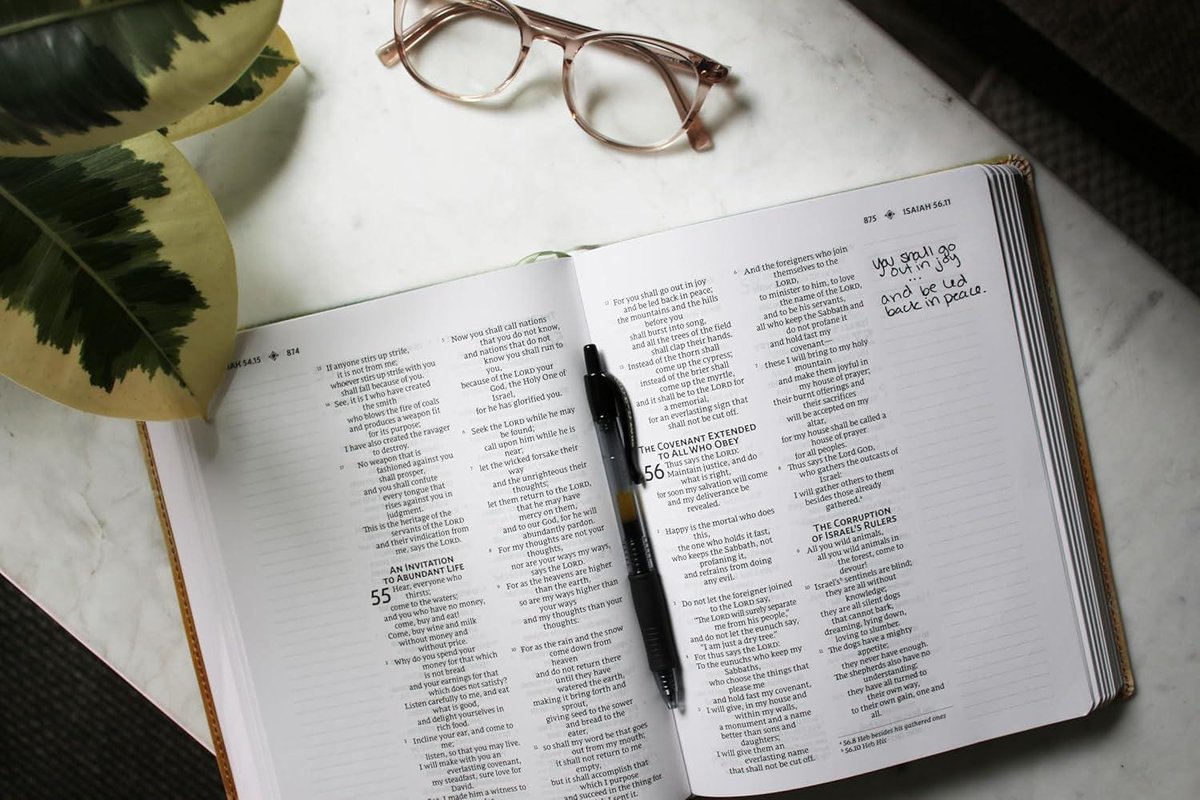 AH 54.15 874
15 If anyone stirs up strife,
it is not from me;
whoever stirs up strife with you
shall fall because of you.
16 See, it is I who have created
the smith
who blows the fire of coals
and produces a weapon fit
for its purpose;
I have also created the ravager
to destroy.
17 No weapon that is
fashioned against you
shall prosper,
and you shall confute
every tongue that
rises against you in
judgment.
This is the heritage of the
servants of the LORD
and their vindication from
me, says the LORD.
AN INVITATION
TO ABUNDANT LIFE
55 Hear, everyone who
thirsts;
come to the waters;
and you who have no money,
come, buy and eat!
Come, buy wine and milk
without money and
without price.
2 Why do you spend your
money for that which
is not bread,
and your earnings for that
which does not satisfy?
Listen carefully to me, and eat
what is good,
and delight yourselves in
rich food.
3 Incline your ear, and come to
me;
listen, so that you may live.
I will make with you an
everlasting covenant,
my steadfast, sure love for
David.
I made him a witness to
5 Now you shall call nations
that you do not know,
and nations that do not
know you shall run to
you,
because of the LORD your
God, the Holy One of
Israel,
for he has glorified you.
6 Seek the LORD while he may
be found;
call upon him while he is
near;
7 let the wicked forsake their
way
and the unrighteous their
thoughts;
let them return to the LORD,
that he may have
mercy on them,
and to our God, for he will
abundantly pardon.
8 For my thoughts are not your
thoughts,
nor are your ways my ways,
says the LORD.
9 For as the heavens are higher
than the earth,
so are my ways higher than
your ways
and my thoughts than your
thoughts.
10 For as the rain and the snow
come down from
heaven
and do not return there
until they have
watered the earth,
making it bring forth and
sprout,
giving seed to the sower
and bread to the
eater,
11 so shall my word be that goes
out from my mouth;
it shall not return to me
empty,
but it shall accomplish that
which I purpose
and succeed in the thing for
I sent it.
875 ISAIAH 56.11
12 For you shall go out in joy
and be led back in peace;
the mountains and the hills
before you
shall burst into song,
and all the trees of the field
shall clap their hands.
13 Instead of the thorn shall
come up the cypress;
instead of the brier shall
come up the myrtle,
and it shall be to the LORD for
a memorial,
for an everlasting sign that
shall not be cut off.
THE COVENANT EXTENDED
TO ALL WHO OBEY
56 Thus says the LORD:
Maintain justice, and do
what is right,
for soon my salvation will come
and my deliverance be
revealed.
2 Happy is the mortal who does
this,
the one who holds it fast,
who keeps the Sabbath, not
profaning it,
and refrains from doing
any evil.
3 Do not let the foreigner joined
to the LORD say,
"The LORD will surely separate
me from his people,"
and do not let the eunuch say,
"I am just a dry tree."
4 For thus says the LORD:
To the eunuchs who keep my
Sabbaths,
who choose the things that
please me
and hold fast my covenant,
5 I will give, in my house and
within my walls,
a monument and a name
better than sons and
daughters;
I will give them an
everlasting name
that shall not be cut off.
6 And the foreigners who join
themselves to the
LORD,
to minister to him, to love
the name of the LORD,
and to be his servants,
all who keep the Sabbath and
do not profane it
and hold fast my
covenant—
7 these I will bring to my holy
mountain
and make them joyful in
my house of prayer;
their burnt offerings and
their sacrifices
will be accepted on my
altar,
for my house shall be called a
house of prayer
for all peoples.
8 Thus says the Lord GOD,
who gathers the outcasts of
Israel:
I will gather others to them
besides those already
gathered.a
THE CORRUPTION
OF ISRAEL'S RULERS
9 All you wild animals,
all you wild animals in
the forest, come to
devour!
10 Israel'sb sentinels are blind;
they are all without
knowledge;
they are all silent dogs
that cannot bark,
dreaming, lying down,
loving to slumber.
11 The dogs have a mighty
appetite;
they never have enough.
The shepherds also have no
understanding;
they have all turned to
their own way,
to their own gain, one and
all.
a 56.8 Heb besides his gathered ones
b 56.10 Heb His
you shall go
out in joy
...
and be led
back in peace.